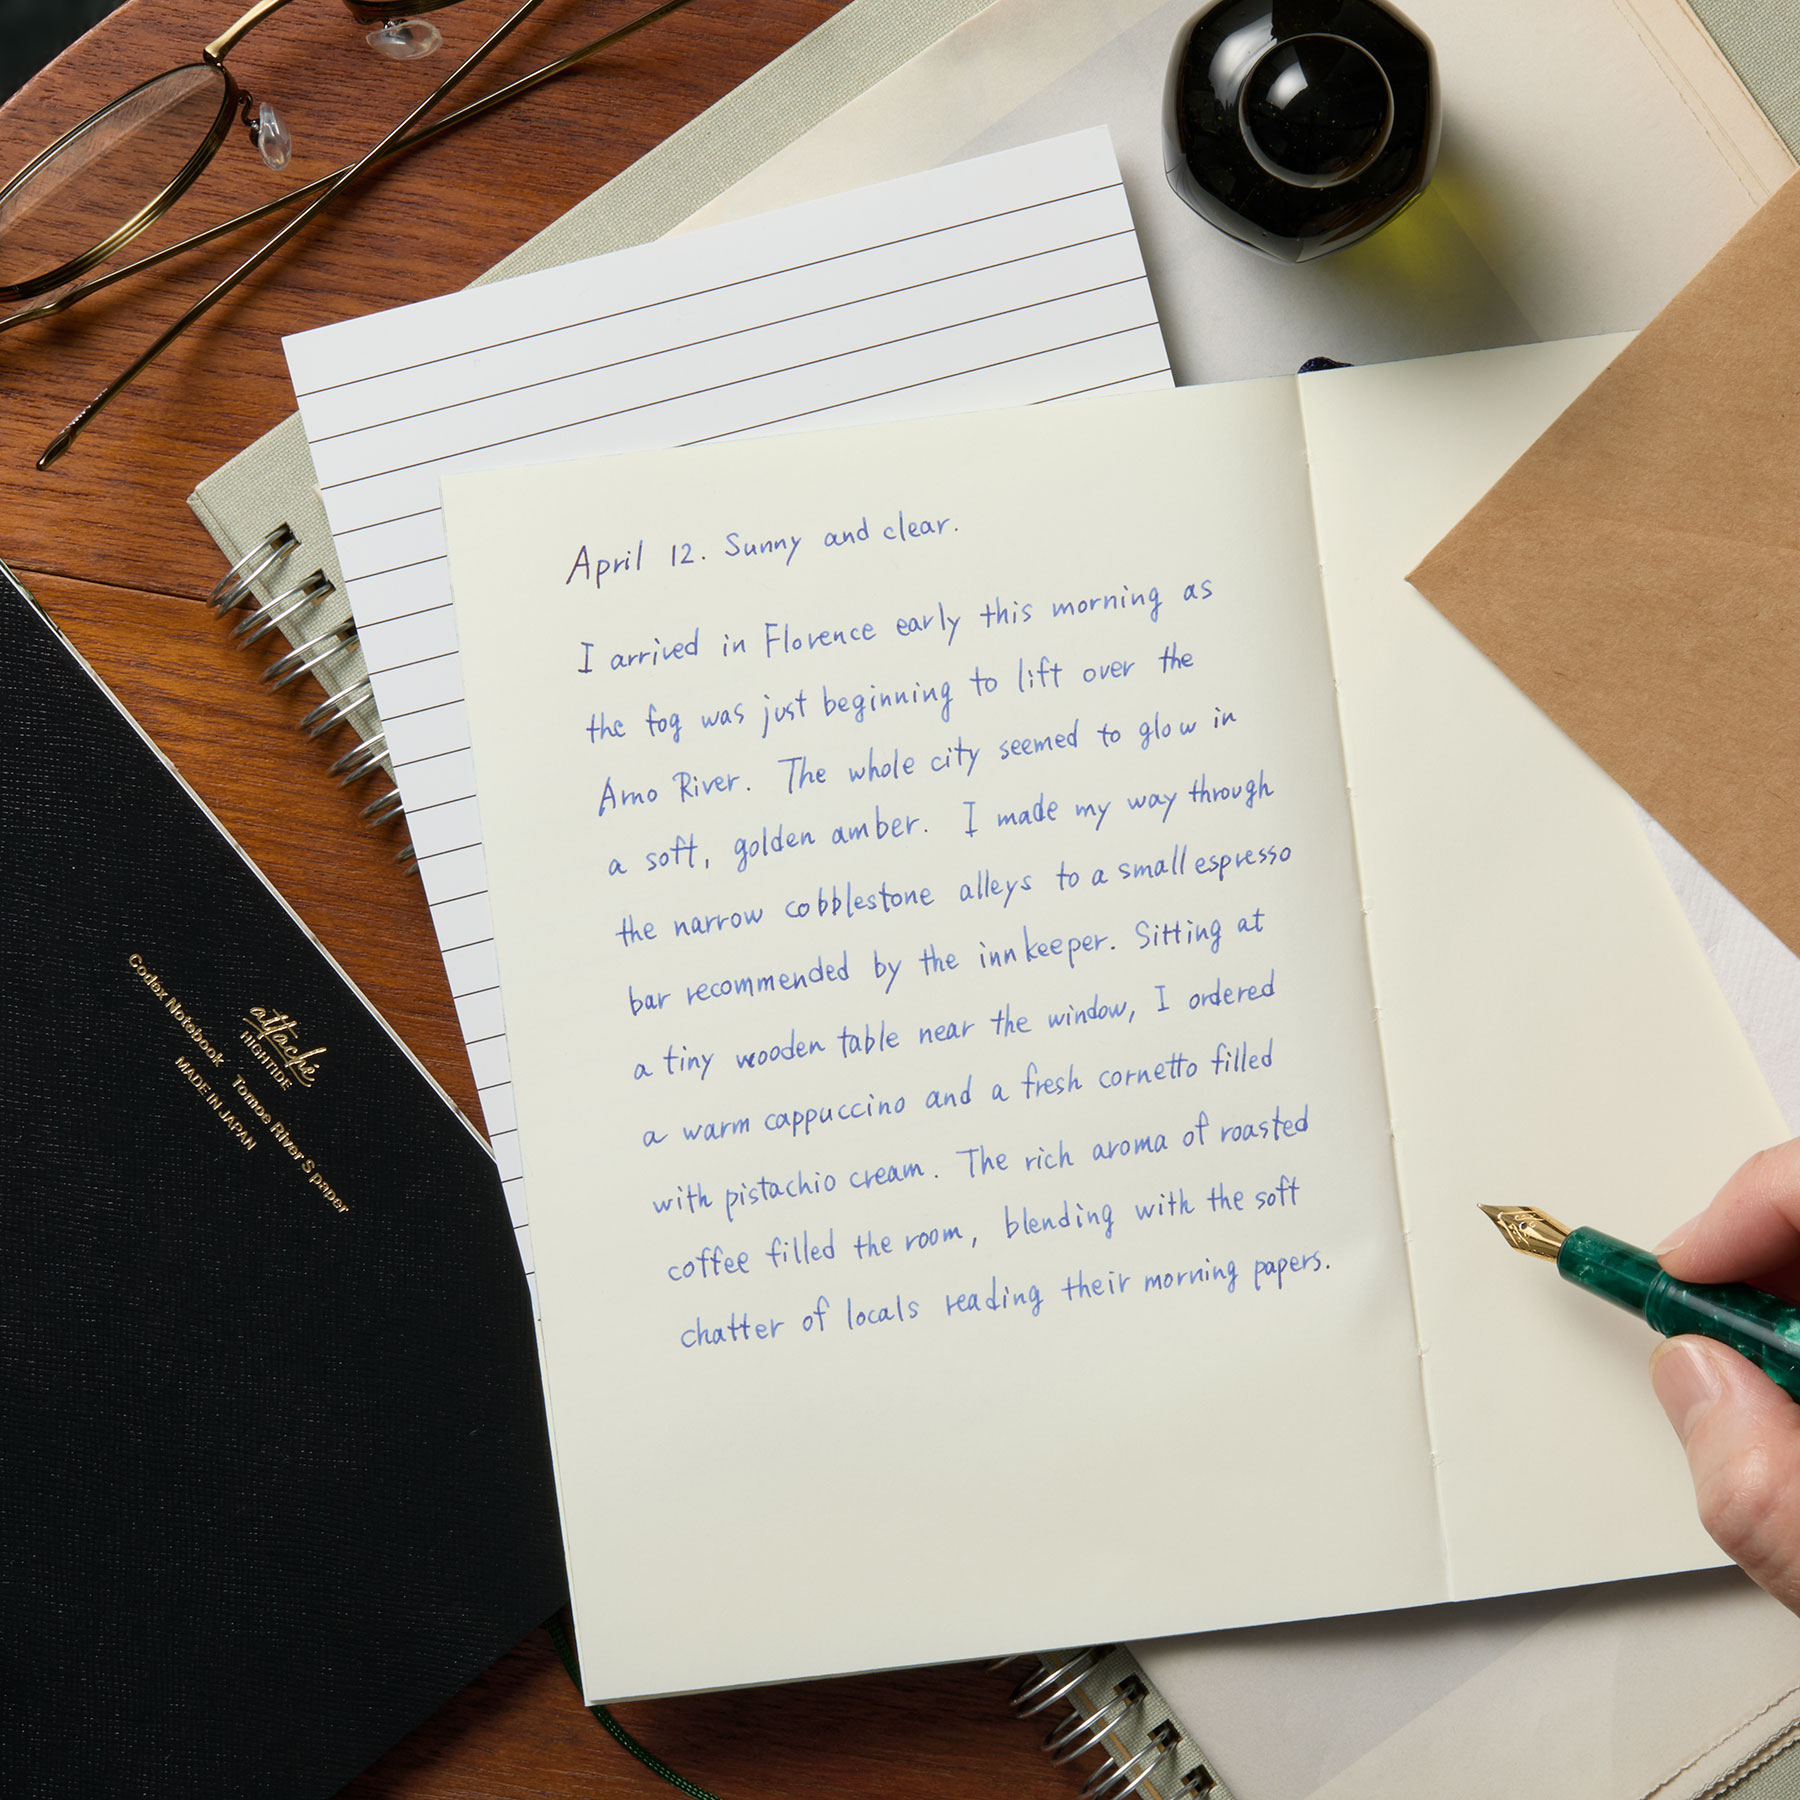 April 12. Sunny and clear.
I arrived in Florence early this morning as
the fog was just beginning to lift over the
Arno River. The whole city seemed to glow in
a soft, golden amber. I made my way through
the narrow cobblestone alleys to a small espresso
bar recommended by the innkeeper. Sitting at
a tiny wooden table near the window, I ordered
a warm cappuccino and a fresh cornetto filled
with pistachio cream. The rich aroma of roasted
coffee filled the room, blending with the soft
chatter of locals reading their morning papers.
attaché
HIGHTIDE
Codex Notebook Tomoe River S paper
MADE IN JAPAN